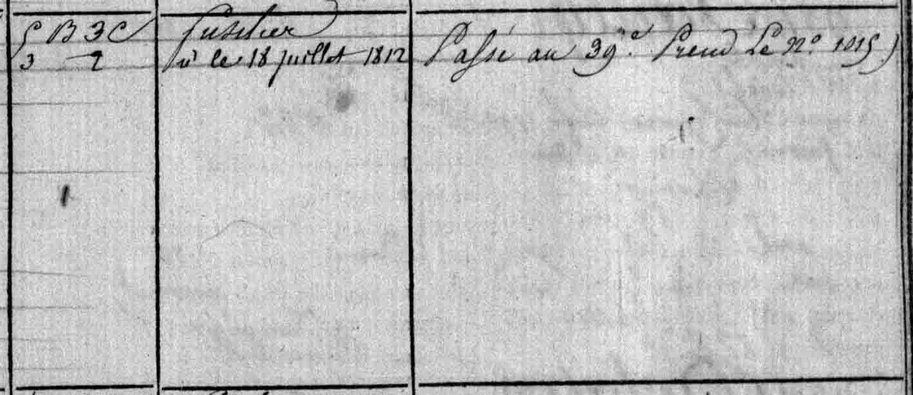 5 B 3 C
3 2
Fusilier
v. le 18 juillet 1812
Passé au 39e. (Prend Le No 1015)